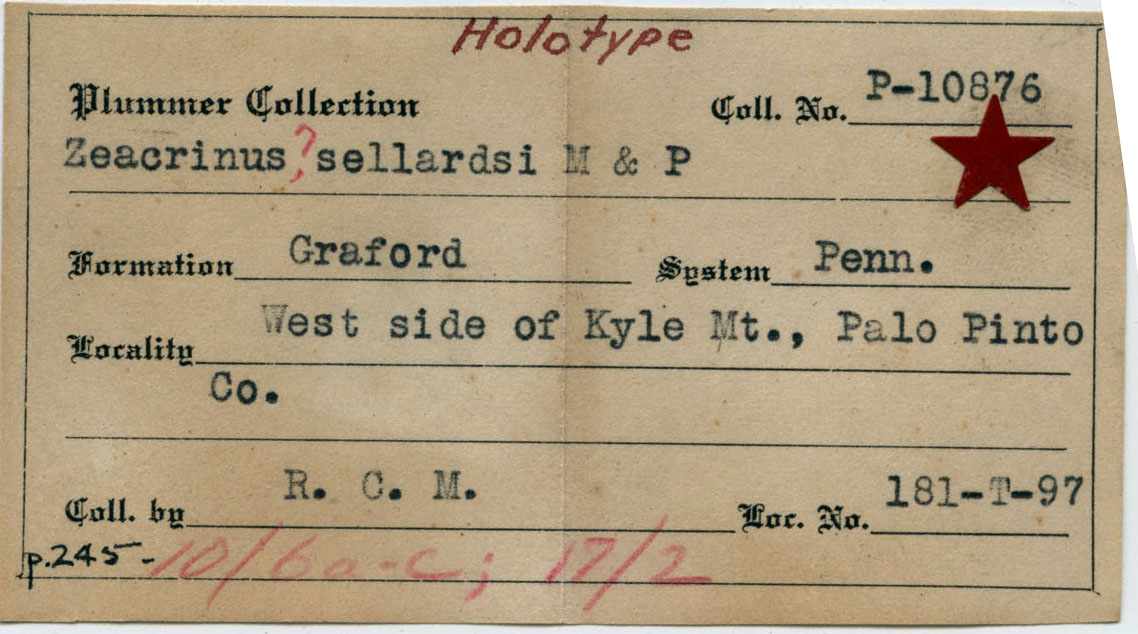 Holotype
Plummer Collection Coll. No. P-10876
Zeacrinus ? sellardsi M & P
Formation Graford System Penn.
Locality West side of Kyle Mt., Palo Pinto
Co.
Coll. by R. C. M. Loc. No. 181-T-97
p.245- 10/6a-c; 17/2